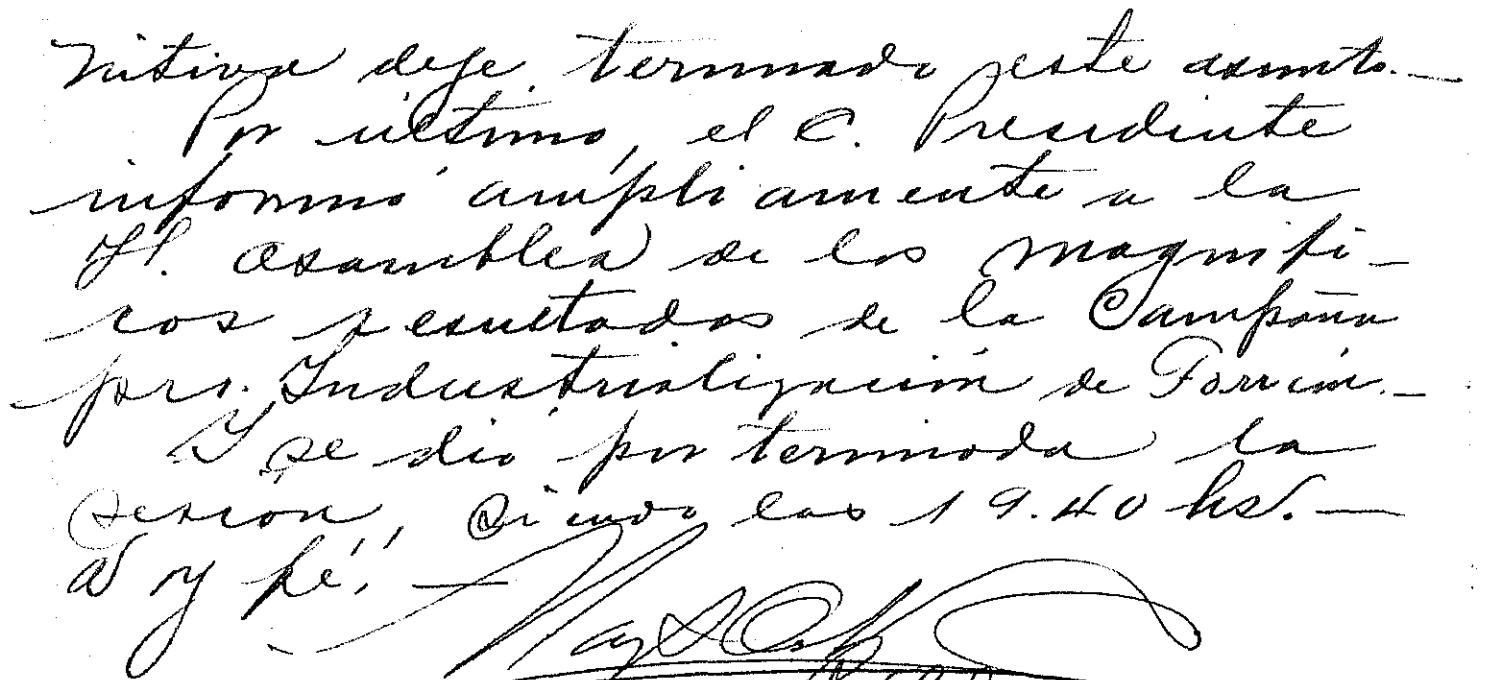 nitiva deje terminado este asunto.—
Por último, el C. Presidente
informó ampliamente a la
H. Asamblea de los magnífi-
cos resultados de la Campaña
pro. Industrialización de Torreón.—
Y se dió por terminada la
sesión, siendo las 19.40 hs.—
Doy fé.—